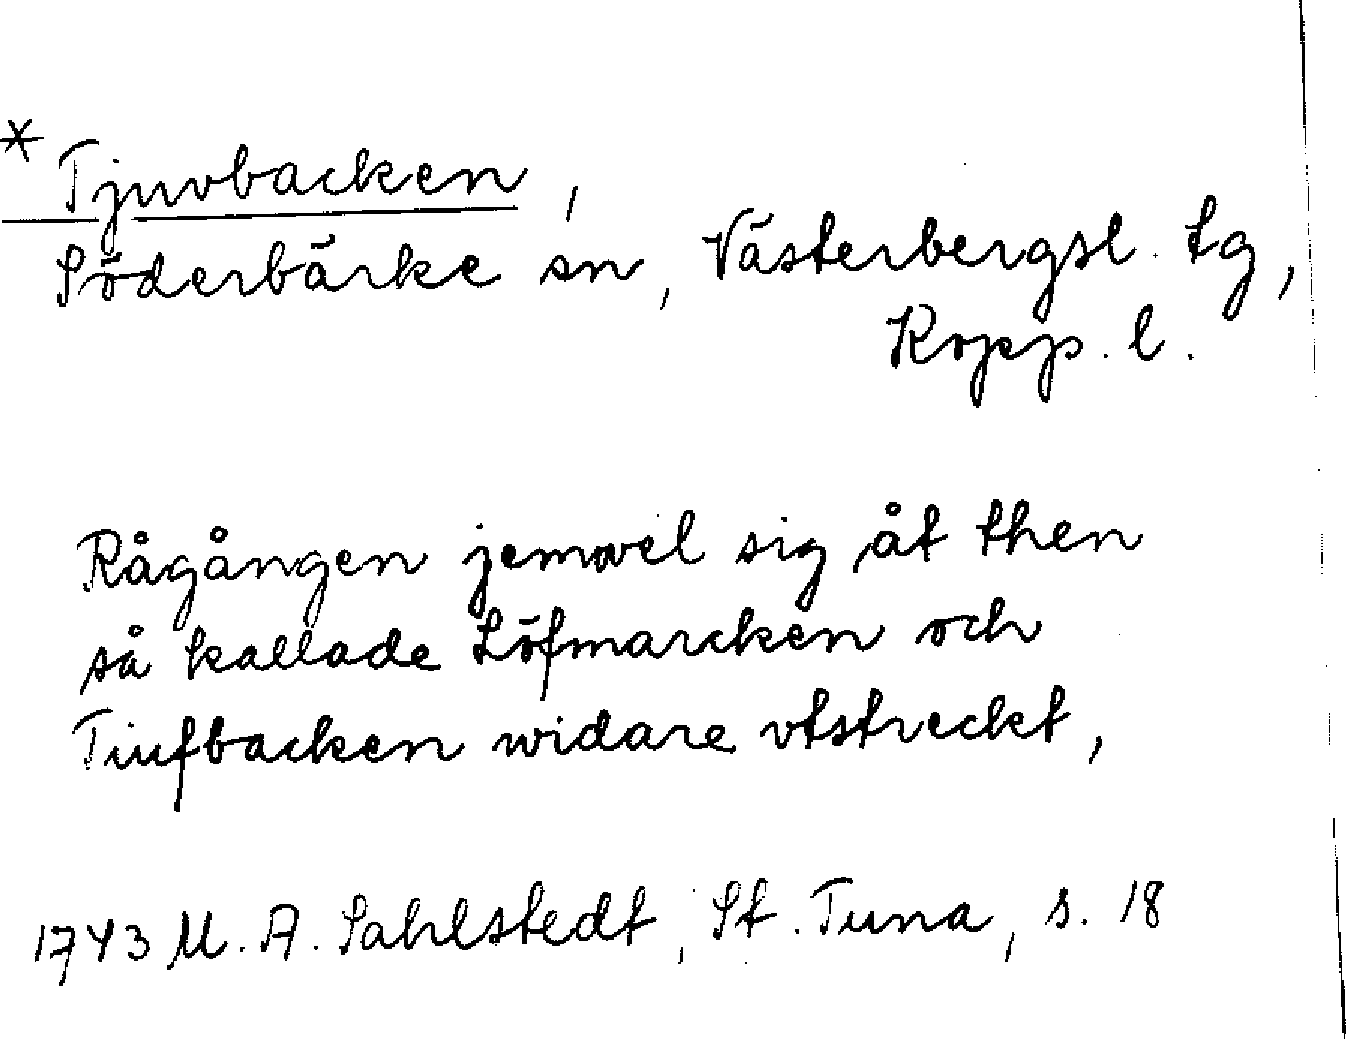 * Tjuvbacken,
Söderbärke sn, Västerbergsl. tg,
Kopp. l.
Rågången jemwel sig åt then
så kallade Löfmarcken och
Tiufbacken widare vtstreckt,
1743 M. A. Sahlstedt, St. Tuna, s. 18